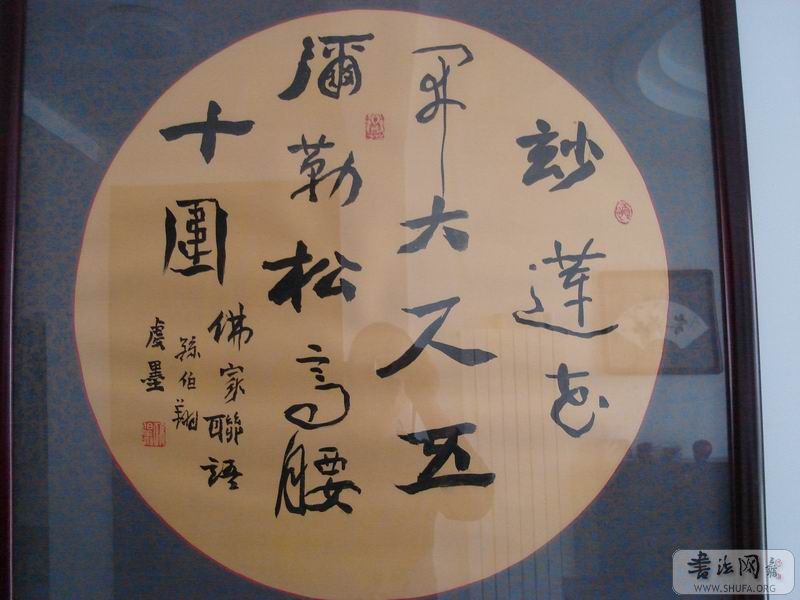 玅蓮花
開大尺五
彌勒松高腰
十圍
佛家聯語
孫伯翔
虔墨
書法网
WWW.SHUFA.ORG